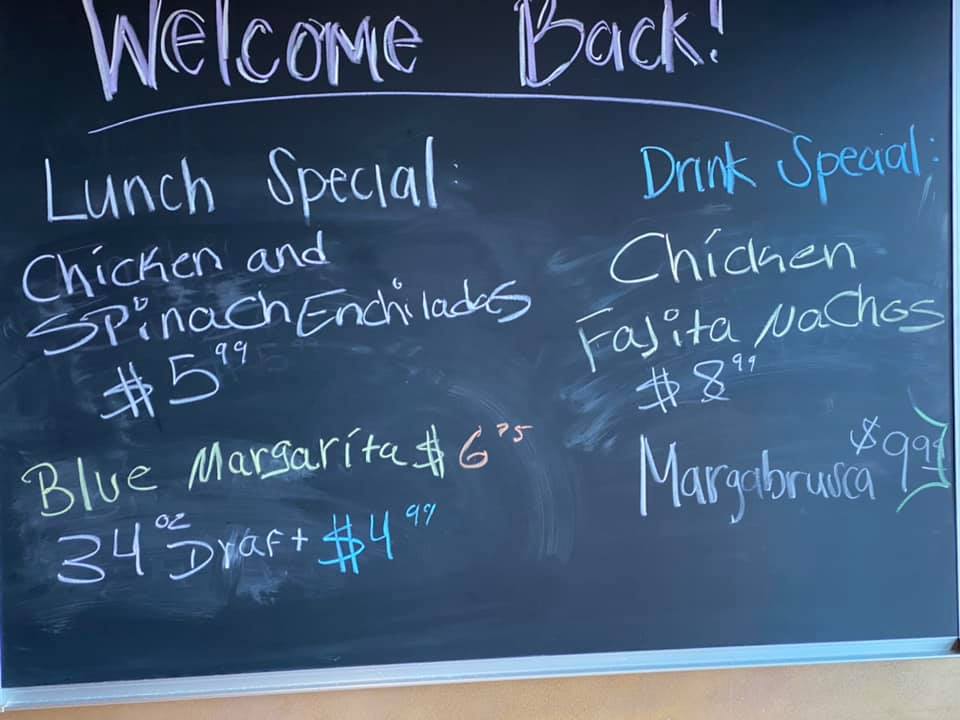 Welcome Back!
Lunch Special:
Chicken and
Spinach Enchiladas
$5.99
Blue Margarita $6.75
34oz Draft $4.99
Drink Special:
Chicken
Fajita Nachos
$8.99
Margabruusca $9.99